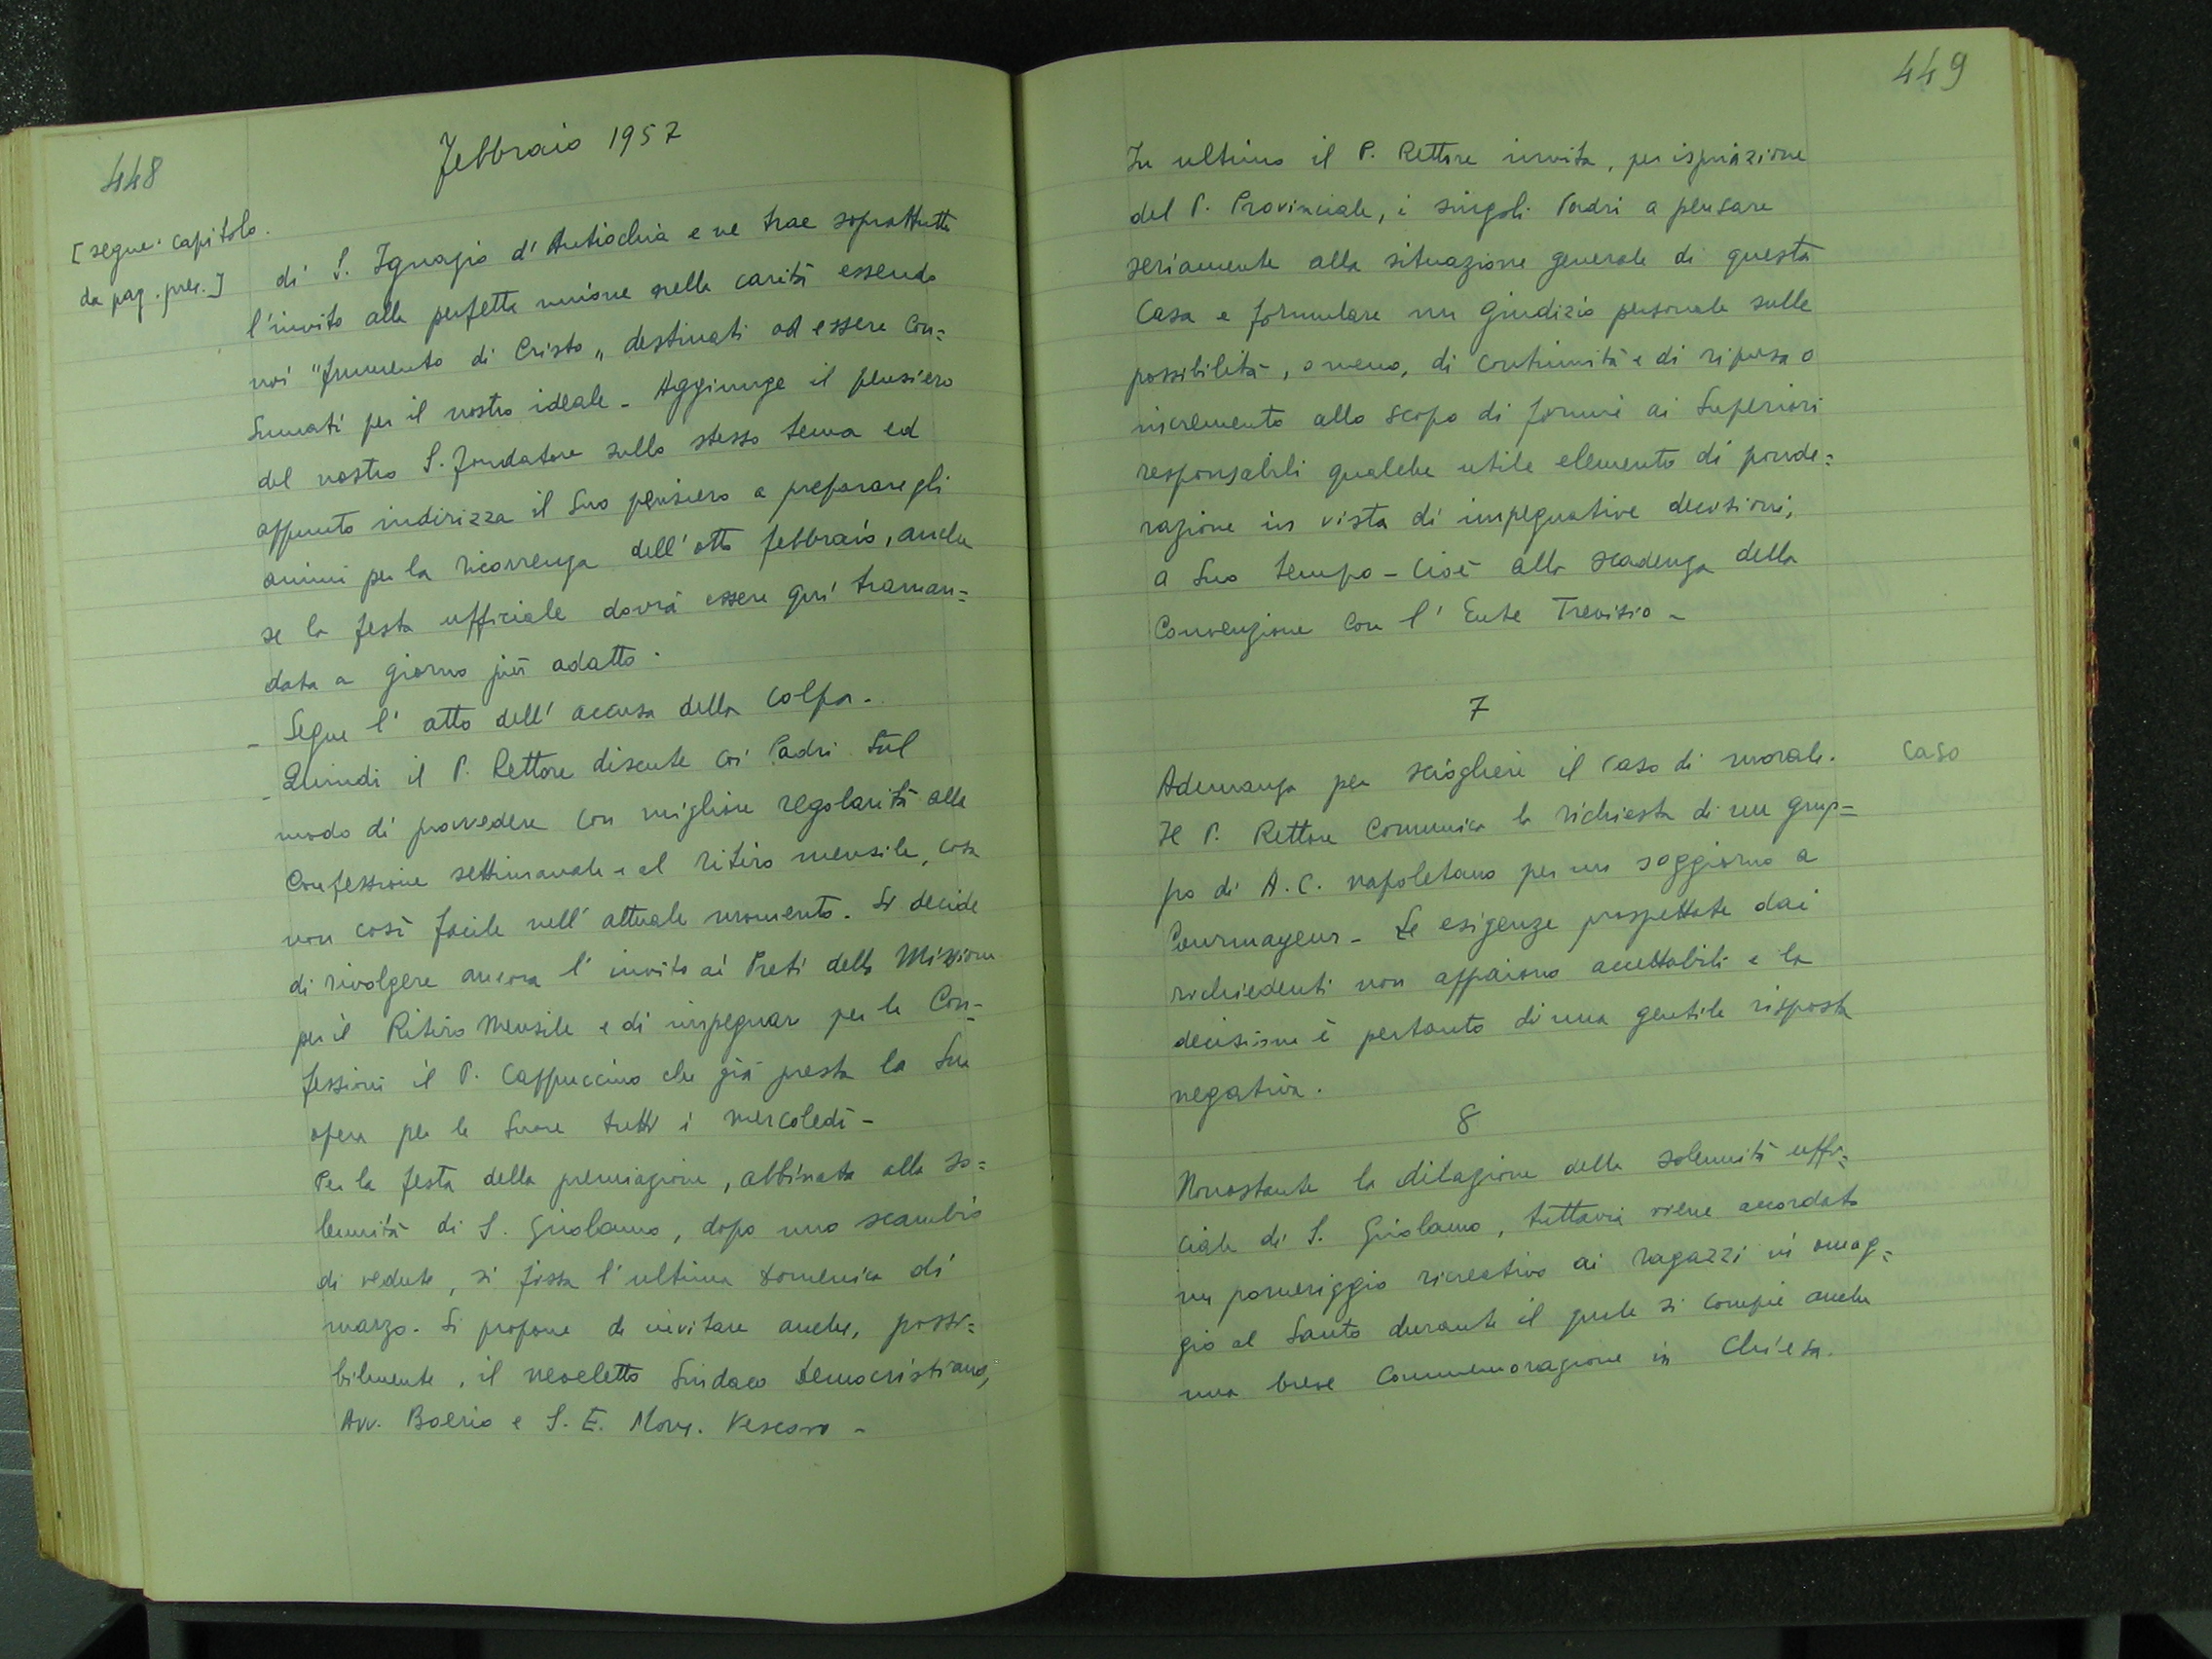 448
Febbraio 1957
[segue capitolo
da pag. prec.]
di S. Ignazio d'Antiochia e ne trae soprattutto
l'invito alla perfetta unione nella carità essendo
noi "frumento di Cristo„ destinati ad essere con=
sumati per il nostro ideale - Aggiunge il pensiero
del nostro S. Fondatore sullo stesso tema ed
appunto indirizza il suo pensiero a preparare gli
animi per la ricorrenza dell'otto febbraio, anche
se la festa ufficiale dovrà essere qui traman=
data a giorno più adatto.
- Segue l'atto dell'accusa della colpa -
- Quindi il P. Rettore discute coi Padri sul
modo di provvedere con migliore regolarità alla
Confessione settimanale e al ritiro mensile, cosa
non così facile nell'attuale momento. Si decide
di rivolgere ancora l'invito ai Preti della Missione
per il Ritiro Mensile e di impegnare per le Con-
fessioni il P. Cappuccino che già presta la sua
opera per le Suore tutti i mercoledì -
Per la festa della premiazione, abbinata alla so=
lennità di S. Girolamo, dopo uno scambio
di vedute, si fissa l'ultima domenica di
marzo. Si propone di invitare anche, possi=
bilmente, il neoeletto Sindaco democristiano,
Avv. Boerio e S. E. Mons. Vescovo -
449
In ultimo il P. Rettore invita, per ispirazione
del P. Provinciale, i singoli Padri a pensare
seriamente alla situazione generale di questa
Casa e formulare un giudizio personale sulle
possibilità, o meno, di continuità e di ripresa o
incremento allo scopo di fornire ai Superiori
responsabili qualche utile elemento di ponde=
razione in vista di impegnative decisioni,
a suo tempo - cioè alla scadenza della
Convenzione con l'Ente Trevisio -
7
Adunanza per sciogliere il caso di morale.
caso
Il P. Rettore comunica la richiesta di un grup=
po di A. C. napoletano per un soggiorno a
Courmayeur - Le esigenze prospettate dai
richiedenti non appaiono accettabili e la
decisione è pertanto di una gentile risposta
negativa.
8
Nonostante la dilazione della solennità uffi=
ciale di S. Girolamo, tuttavia viene accordato
un pomeriggio ricreativo ai ragazzi in omag=
gio al Santo durante il quale si compie anche
una breve Commemorazione in Chiesa.